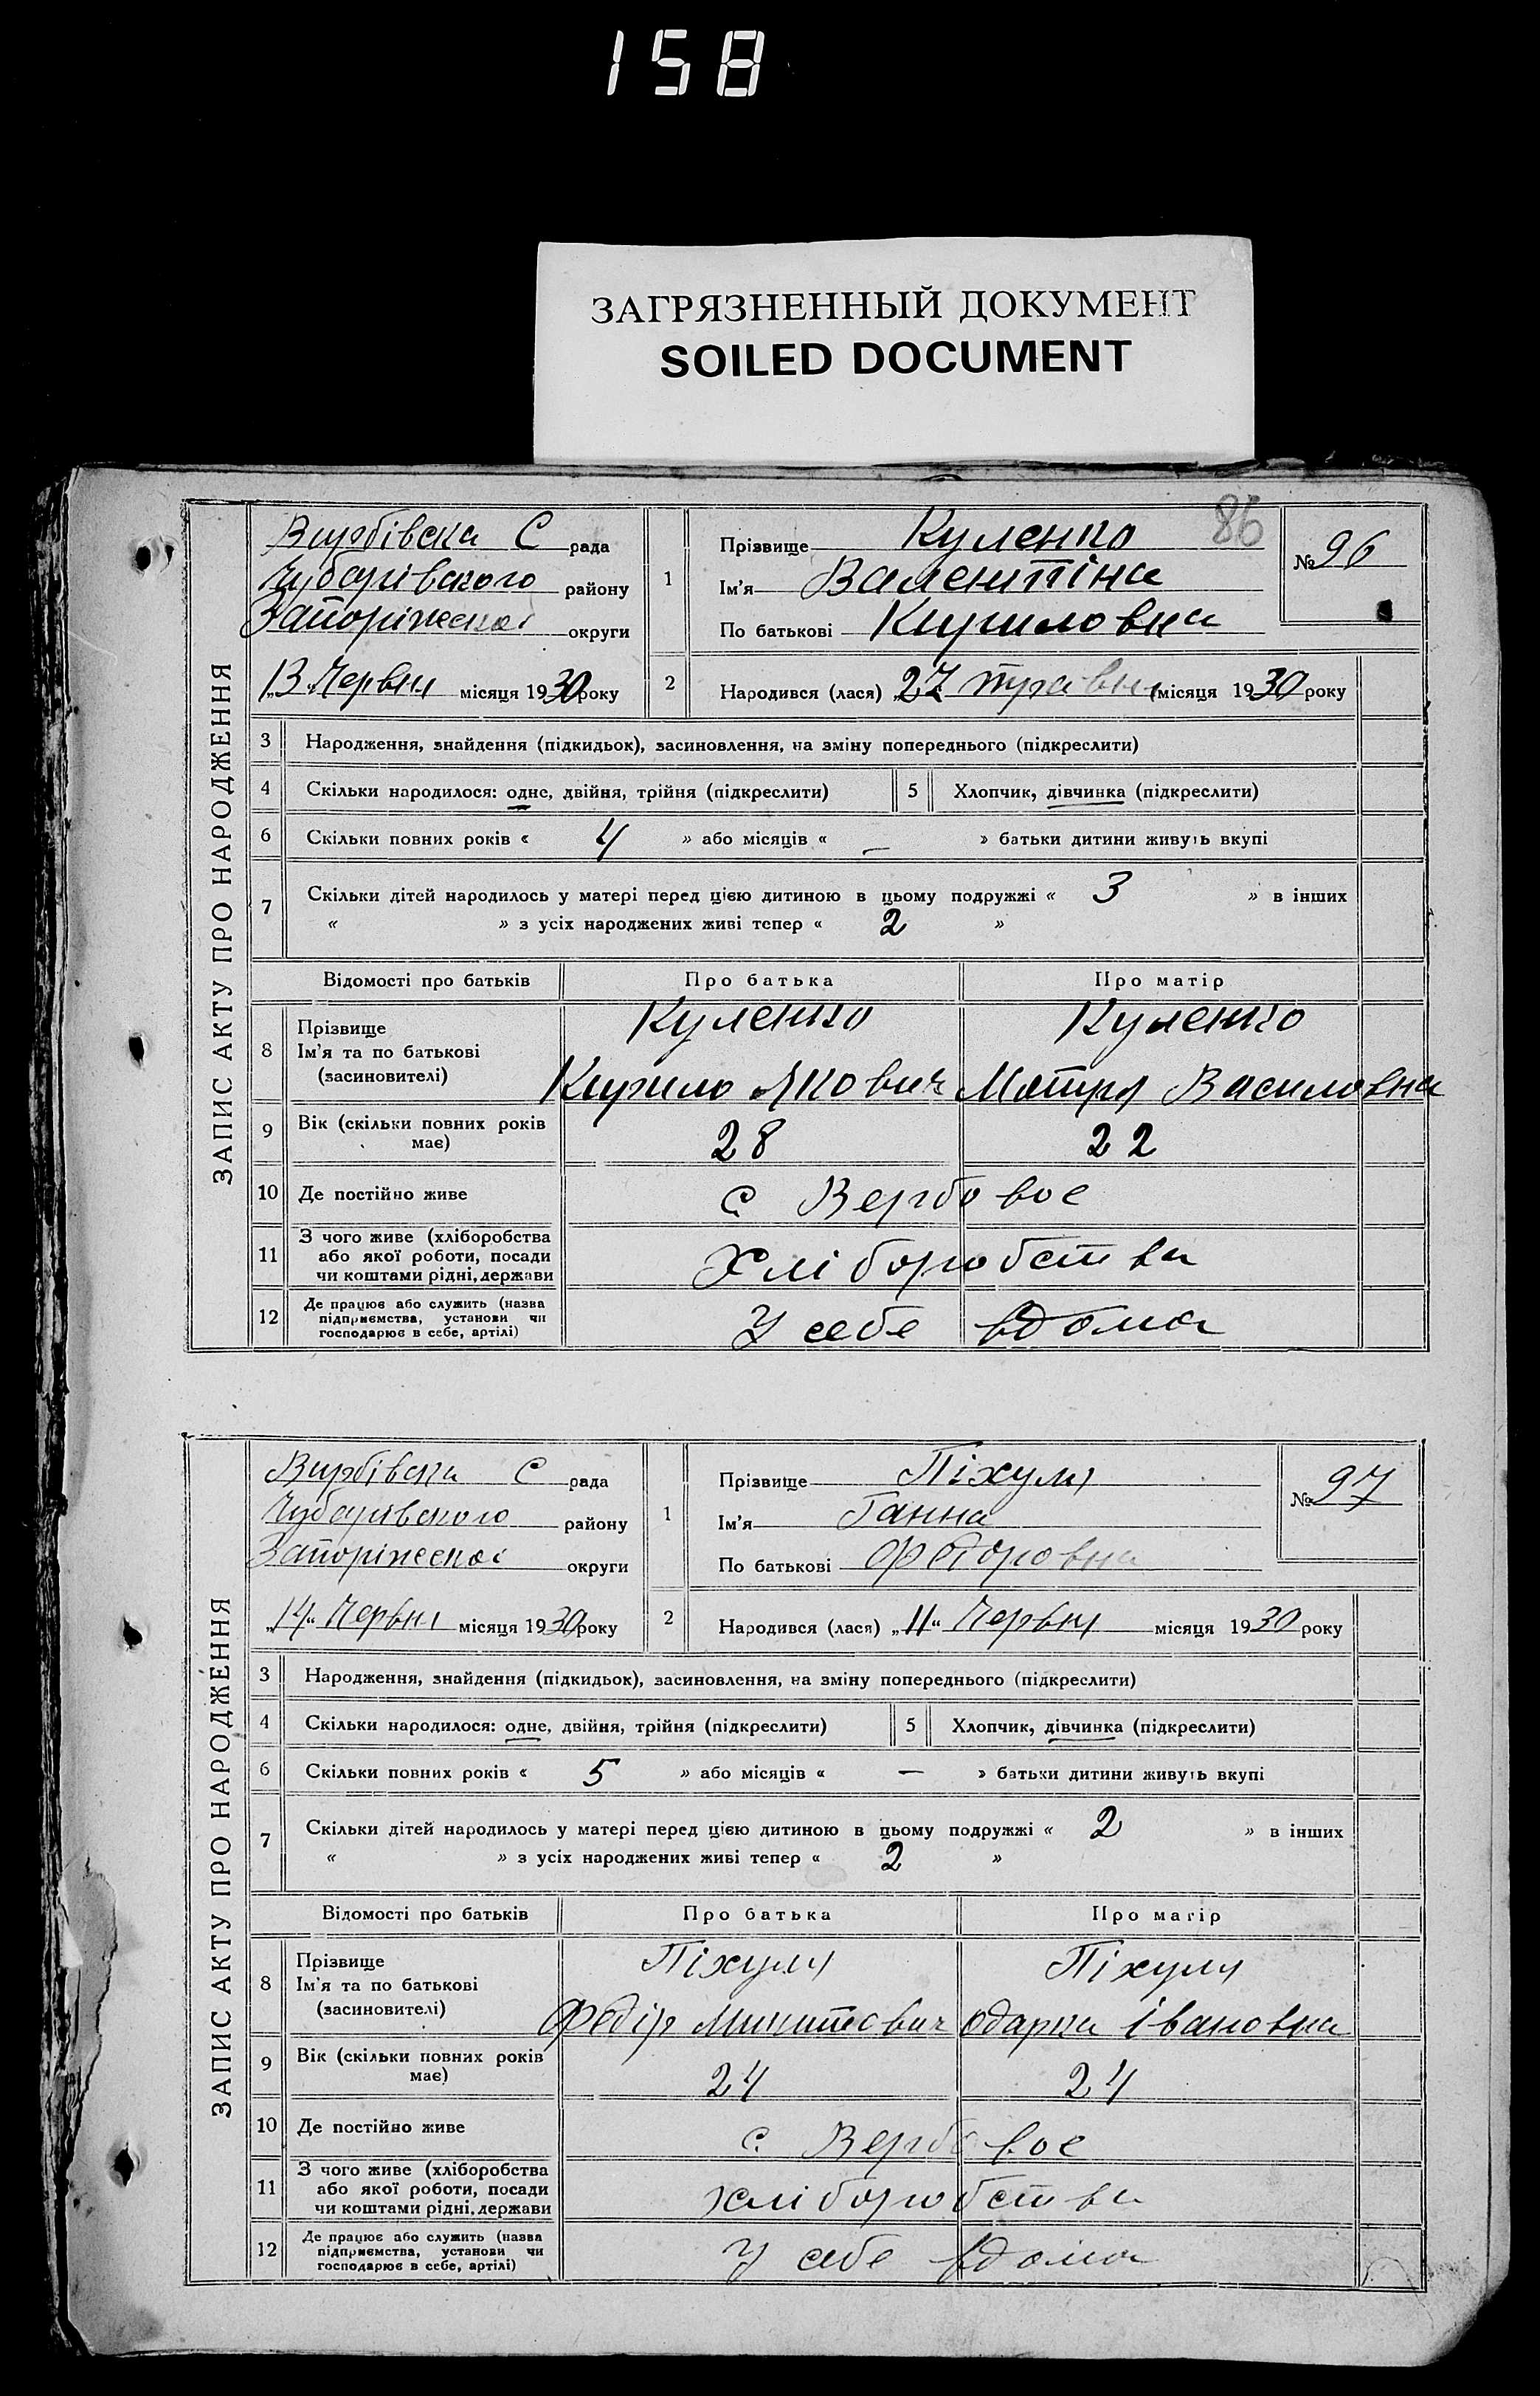 158
ЗАГРЯЗНЕННЫЙ ДОКУМЕНТ
SOILED DOCUMENT
86
ЗАПИС АКТУ ПРО НАРОДЖЕННЯ
Вирбівска С рада
Чубарівского району
Запоріжскоі округи
„13„ Червня місяця 1930 року
1 Прізвище Куленко
Ім'я Валентіна
По батькові Кириловна
№ 96
2 Народився (лася) „27 травня місяця 1930 року
3 Народження, знайдення (підкидьок), засиновлення, на зміну попереднього (підкреслити)
4 Скільки народилося: одне, двійня, трійня (підкреслити) 5 Хлопчик, дівчинка (підкреслити)
6 Скільки повних років « 4 » або місяців « — » батьки дитини живуть вкупі
7 Скільки дітей народилось у матері перед цією дитиною в цьому подружжі « 3 » в інших
« » з усіх народжених живі тепер « 2 »
Відомості про батьків Про батька Про матір
8 Прізвище Куленко Куленко
Ім'я та по батькові
(засиновителі) Кирило Якович Мотря Василовна
9 Вік (скільки повних років
має) 28 22
10 Де постійно живе с Вербовое
11 З чого живе (хліборобства
або якої роботи, посади
чи коштами рідні, держави Хліборобства
12 Де працює або служить (назва
підприємства, установи чи
господарює в себе, артілі) У себе вдома
ЗАПИС АКТУ ПРО НАРОДЖЕННЯ
Вирбівска С рада
Чубарівского району
Запоріжскоі округи
„14“ Червня місяця 1930 року
1 Прізвище Піхуля
Ім'я Ганна
По батькові Федоровна
№ 97
2 Народився (лася) „11“ Червня місяця 1930 року
3 Народження, знайдення (підкидьок), засиновлення, на зміну попереднього (підкреслити)
4 Скільки народилося: одне, двійня, трійня (підкреслити) 5 Хлопчик, дівчинка (підкреслити)
6 Скільки повних років « 5 » або місяців « — » батьки дитини живуть вкупі
7 Скільки дітей народилось у матері перед цією дитиною в цьому подружжі « 2 » в інших
« » з усіх народжених живі тепер « 2 »
Відомості про батьків Про батька Про матір
8 Прізвище Піхуля Піхуля
Ім'я та по батькові
(засиновителі) Федір Микитович Одарка Івановна
9 Вік (скільки повних років
має) 24 24
10 Де постійно живе с. Вербовое
11 З чого живе (хліборобства
або якої роботи, посади
чи коштами рідні, держави хліборобства
12 Де працює або служить (назва
підприємства, установи чи
господарює в себе, артілі) У себе вдома